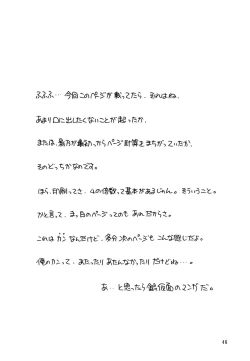 ふふふ…今回このページが載ってたら、それはね、
あまり口に出したくないことが起ったか、
または、最初が最初っからページ計算をまちがっていたか、
そのどっちかなのです。
ほら、印刷ってさ、4の倍数って基本があるじゃん。そういうこと。
かと言って、まっ白のページってのも あれだからさ。
これは カンなんだけど、多分次のページも こんな感じだよ。
俺のカンって、またったり あたんなかったりだけどね…。
あ…と思ったら銀仮面のマンガだ。
48